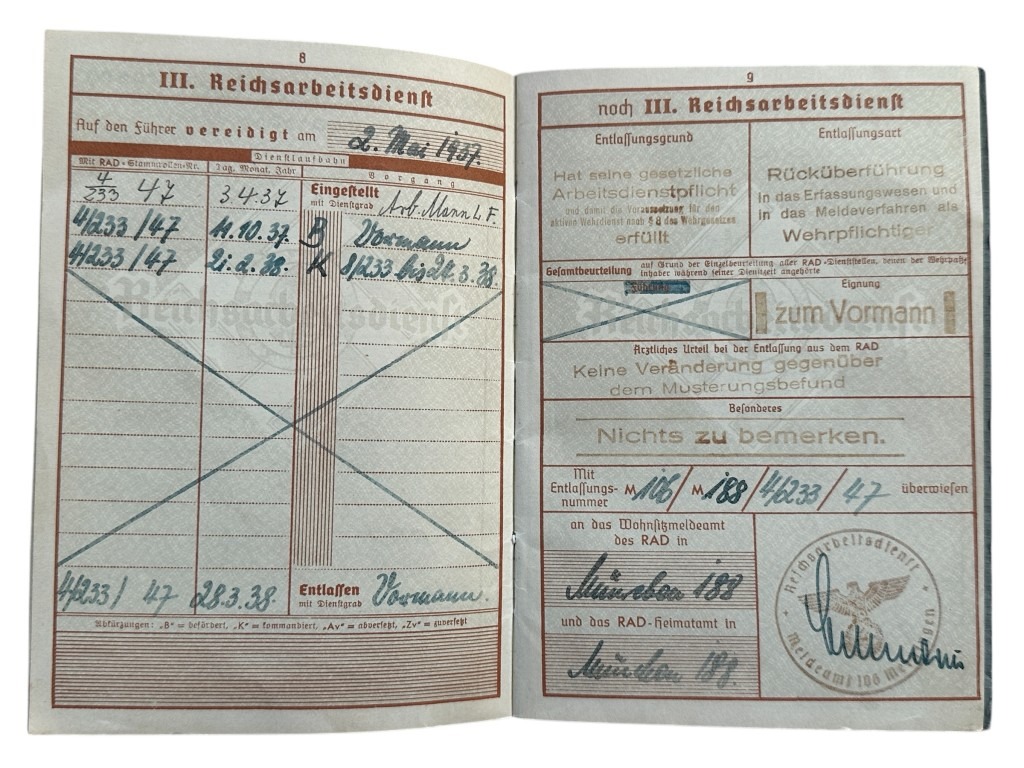 8
III. Reichsarbeitsdienst
Auf den Führer vereidigt am 2. Mai 1937.
Dienstlaufbahn
Mit RAD-Stammrollen-Nr. Tag, Monat, Jahr Vorgang
4/233 47 3.4.37 Eingestellt mit Dienstgrad Arb. Mann
4/233/47 11.10.37. B Vormann
4/233/47 2.38. K 8/233 bis 3.38.
4/233/ 47 28.3.38. Entlassen mit Dienstgrad Vormann.
Abkürzungen: „B" = befördert, „K" = kommandiert, „Av" = abversetzt, „Zv" = zuversetzt
9
noch III. Reichsarbeitsdienst
Entlassungsgrund
Hat seine gesetzliche
Arbeitsdienstpflicht
und damit die Voraussetzung für den
aktiven Wehrdienst nach § 8 des Wehrgesetzes
erfüllt
Entlassungsart
Rücküberführung
in das Erfassungswesen und
in das Meldeverfahren als
Wehrpflichtiger
Gesamtbeurteilung auf Grund der Einzelbeurteilung aller RAD-Dienststellen, denen der Wehrpaß-
inhaber während seiner Dienstzeit angehörte
Eignung
zum Vormann
Ärztliches Urteil bei der Entlassung aus dem RAD
Keine Veränderung gegenüber
dem Musterungsbefund
Besonderes
Nichts zu bemerken.
Mit
Entlassungs-
nummer M 106/ M 188/4/233/ 47 überwiesen
an das Wohnsitzmeldeamt
des RAD in
München 188
und das RAD-Heimatamt in
München 188.
Reichsarbeitsdienst
Meldeamt 106